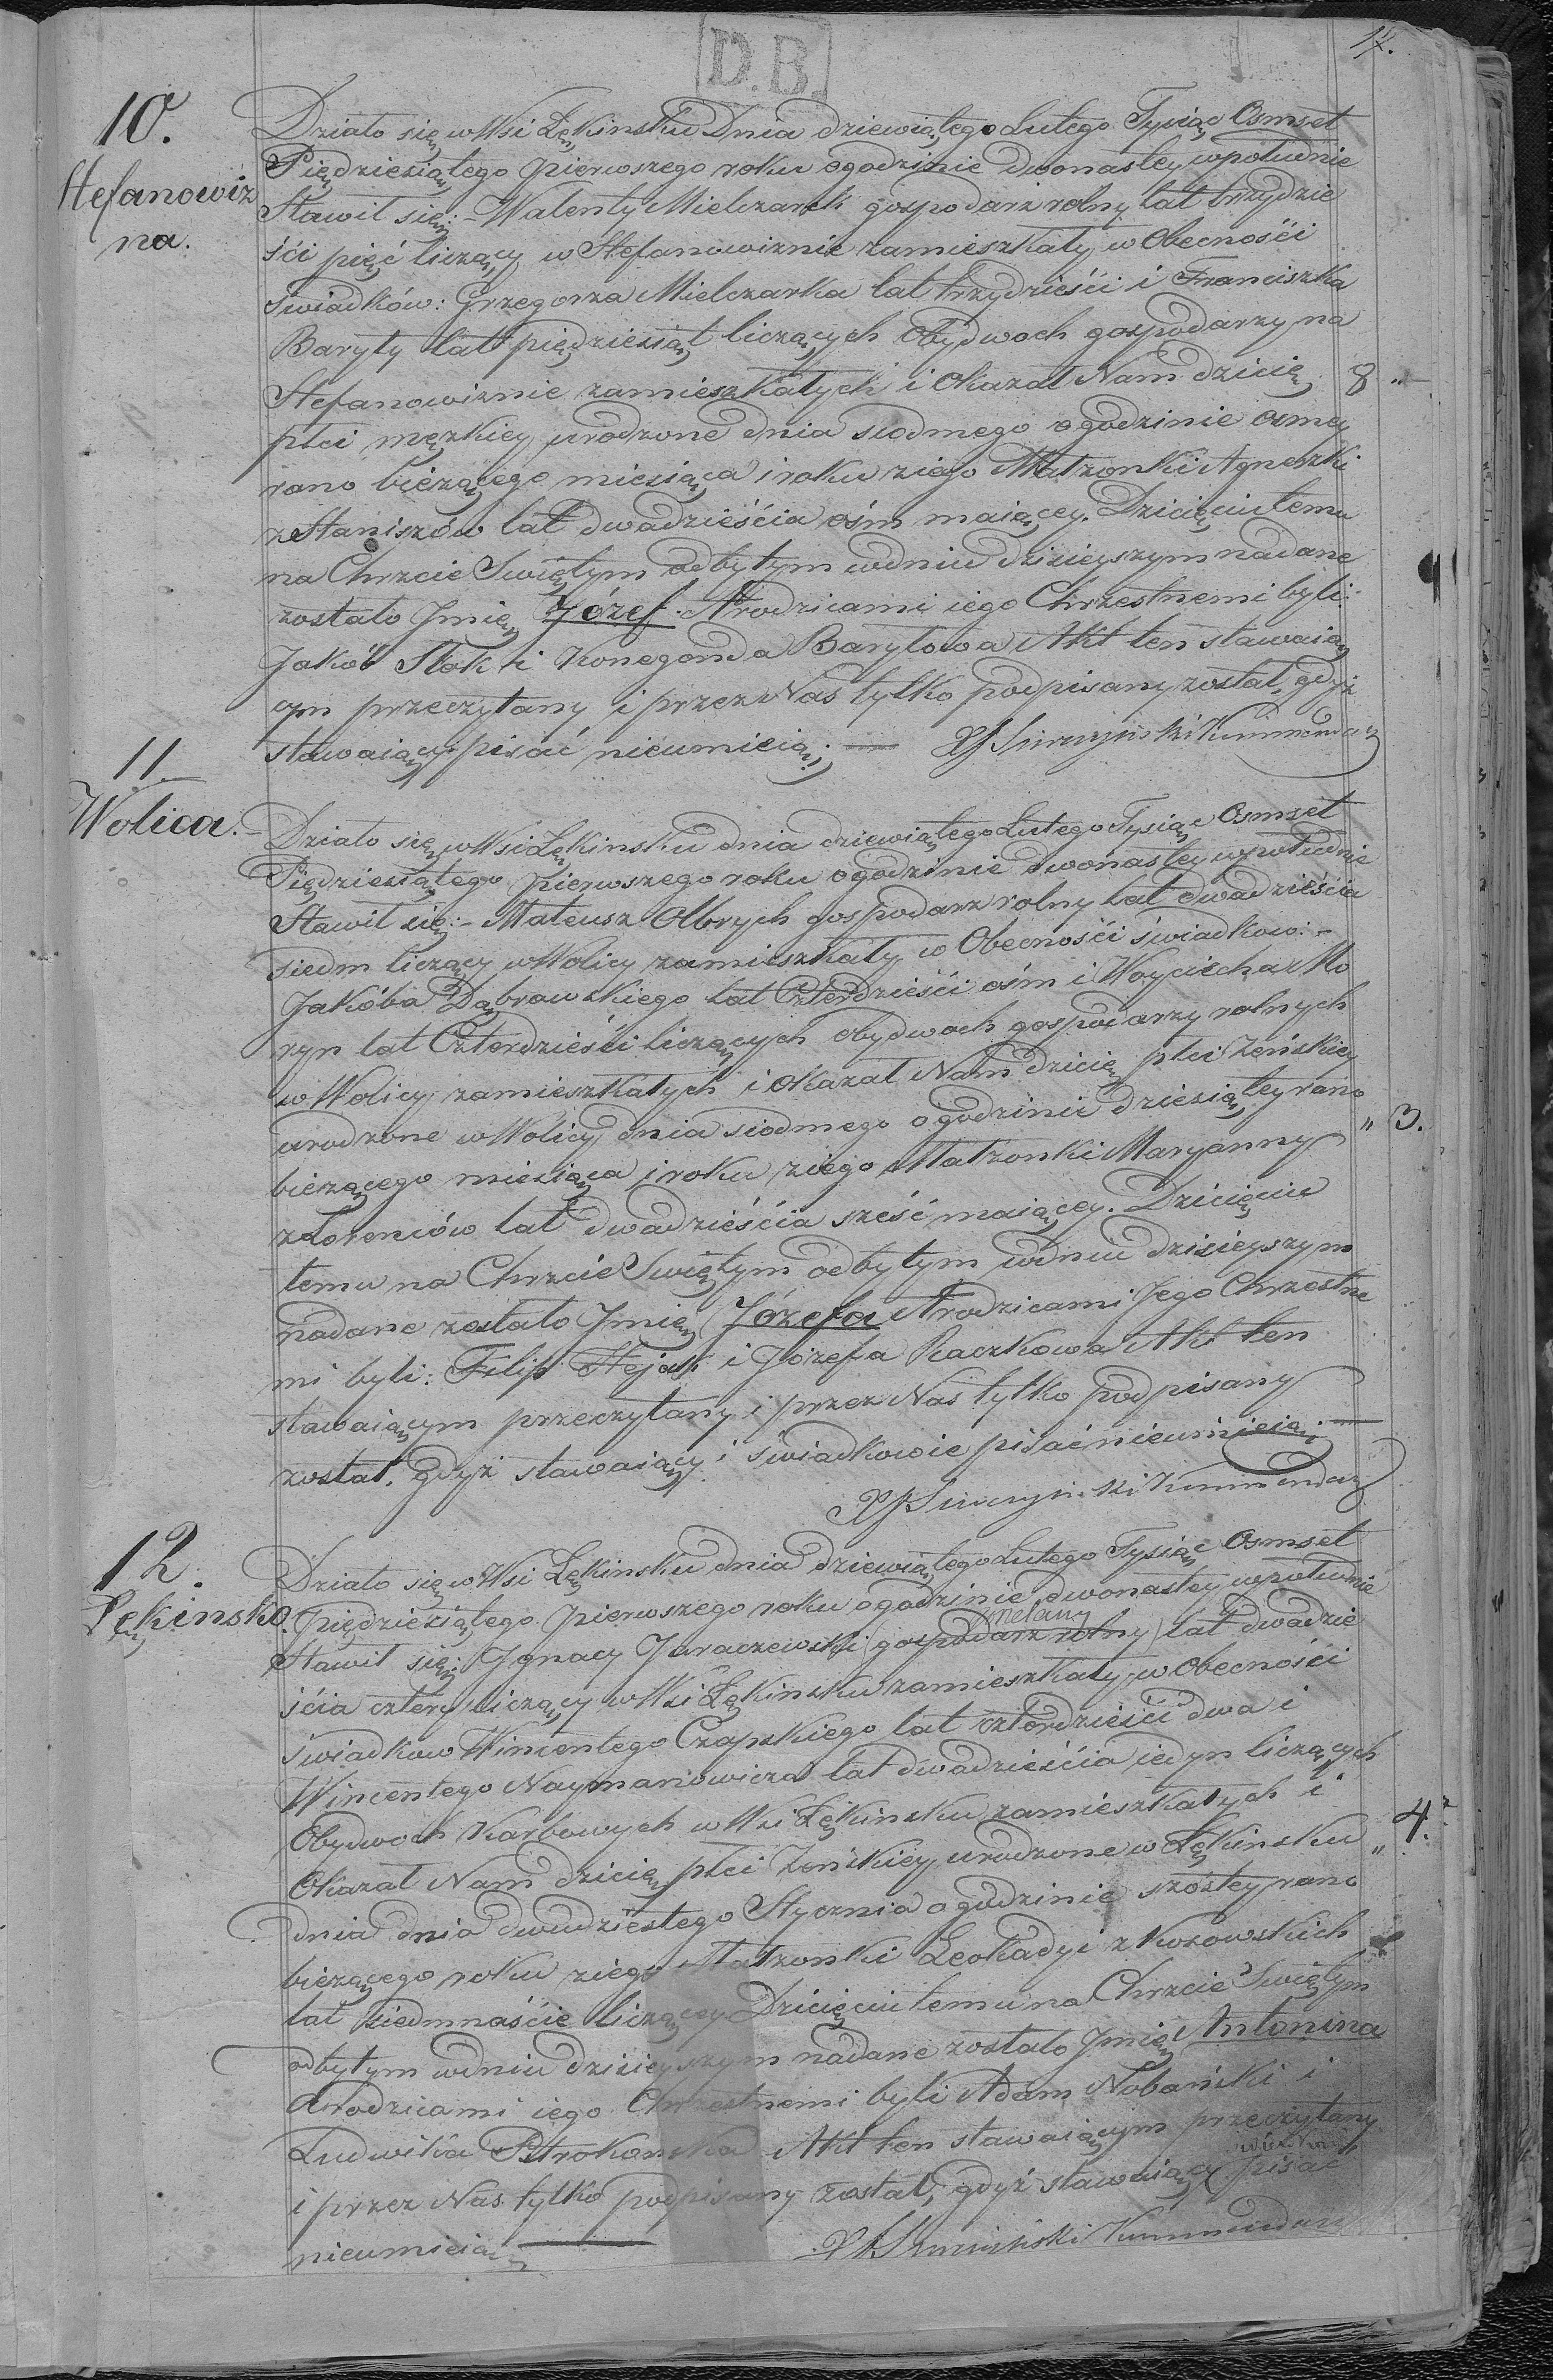 14.
D.B.
10.
Stefanowiz
na.
Działo się w Wsi Łękinsku Dnia dziewiątego Lutego Tysiąc Osmset
Piędziesiątego pierwszego roku ogodzinie dwonastey wpołudnie
Stawił się: - Walenty Mielczarek gospodarz rolny lat trzydzie
ści pięć liczący w Stefanowiznie zamieszkały w Obecności
świadków: Grzegorza Mielczarka lat trzydzieści i Franciszka
Baryły lat piędziesiąt liczących Obydwoch gospodarzy na
Stefanowiznie zamieszkałych i Okazał Nam dziecię 8 "
płci męzkiey urodzone dnia siodmego ogodzinie osmey
rano bieżącego miesiąca i roku ziego Małżonki Agneszki
z Staniszów lat dwadzieścia ośm maiącey. Dziecięciu temu
na Chrzcie Swiętym odbytym wdniu dzisieyszym nadane
zostało Jmię Józef. A rodzicami iego Chrzestnemi byli:
Jakób Słok i Konegonda Baryłowa Akt ten stawaią
cym przeczytany i przez Nas tylko podpisany został, gdyż
stawaiący pisać nieumieią; — Kummendarz
11.
Wolica.
Działo się w Wsi Łękinsku dnia dziewiątego Lutego Tysiąc Osmset
Piędziesiątego pierwszego roku ogodzinie dwonastey wpołudnie
Stawił się: - Mateusz Olbrych gospodarz rolny lat dwadzieścia
siedm liczący wWolicy zamieszkały w Obecności świadkow: -
Jakóba Dąbrowskiego lat Czterdzieści ośm i Woyciecha Mo
ryn lat Czterdzieści liczących obydwoch gospodarzy rolnych
w Wolicy zamieszkałych i okazał Nam dziecię płci żeńskiey
urodzone w Wolicy dnia siodmego ogodzinie dziesiątey rano " 3.
bieżącego miesiąca i roku ziego Małżonki Maryanny
z Loreniów lat dwadzieścia sześć maiącey. Dziecięciu
temu na Chrzcie Swiętym odbytym wdniu dzisieyszym
nadane zostało Jmię Józefa A rodzicami Jego Chrzestne
mi byli: Filip Stejak i Józefa Raczkowa Akt ten
stawaiącym przeczytany i przez Nas tylko podpisany
został, gdyż stawaiący i świadkowie pisać nieumieią; —
Kummendarz
12.
Łękinsko.
Działo się w Wsi Łękinsku dnia dziewiątego Lutego Tysiąc Osmset
piędziesiątego pierwszego roku ogodzinie dwonastey wpołudnie
Stawił się: Jgnacy Jaraczewski gospodarz rolny lat dwadzie
ścia cztery liczący w Wsi Łękinsku zamieszkały w Obecności
świadkow Wincentego Czapskiego lat czterdzieści dwa i
Wincentego Naymanowicza lat dwadzieścia iedyn liczących
Obydwoch Karbowych w Wsi Łękinsku zamieszkałych i
Okazał Nam dziecię płci żeńskiey urodzone w Łękinsku " 4.
dnia dnia dwudziestego Stycznia ogodzinie szóstey rano
bieżącego roku ziego Małżonki Leokadyi z Kozowskich
lat siedmnaście liczącey Dziecięciu temu na Chrzcie Swiętym
odbytym wdniu dzisieyszym nadane zostało Jmię Antonina
A rodzicami iego Chrzestnemi byli Adam Nobański i
Ludwika Akt ten stawaiącym przeczytany
i przez Nas tylko podpisany został, gdyż stawaiący pisać
nieumieią — Kummendarz